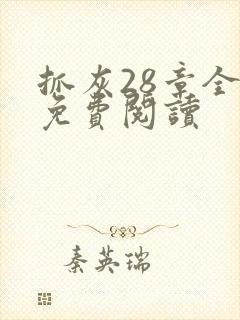 抓灰28章全
免費閱讀
秦英瑞